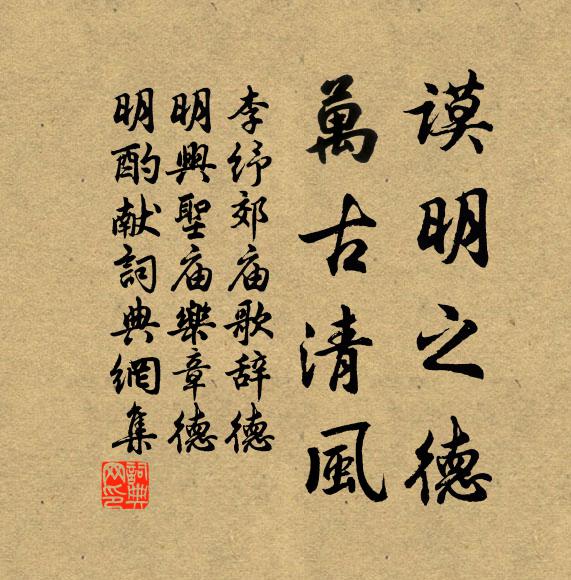 謨明之德
萬古清風
李纾郊庙歌辞德
明興聖庙樂章德
明酌献詞典網集
詞典网印